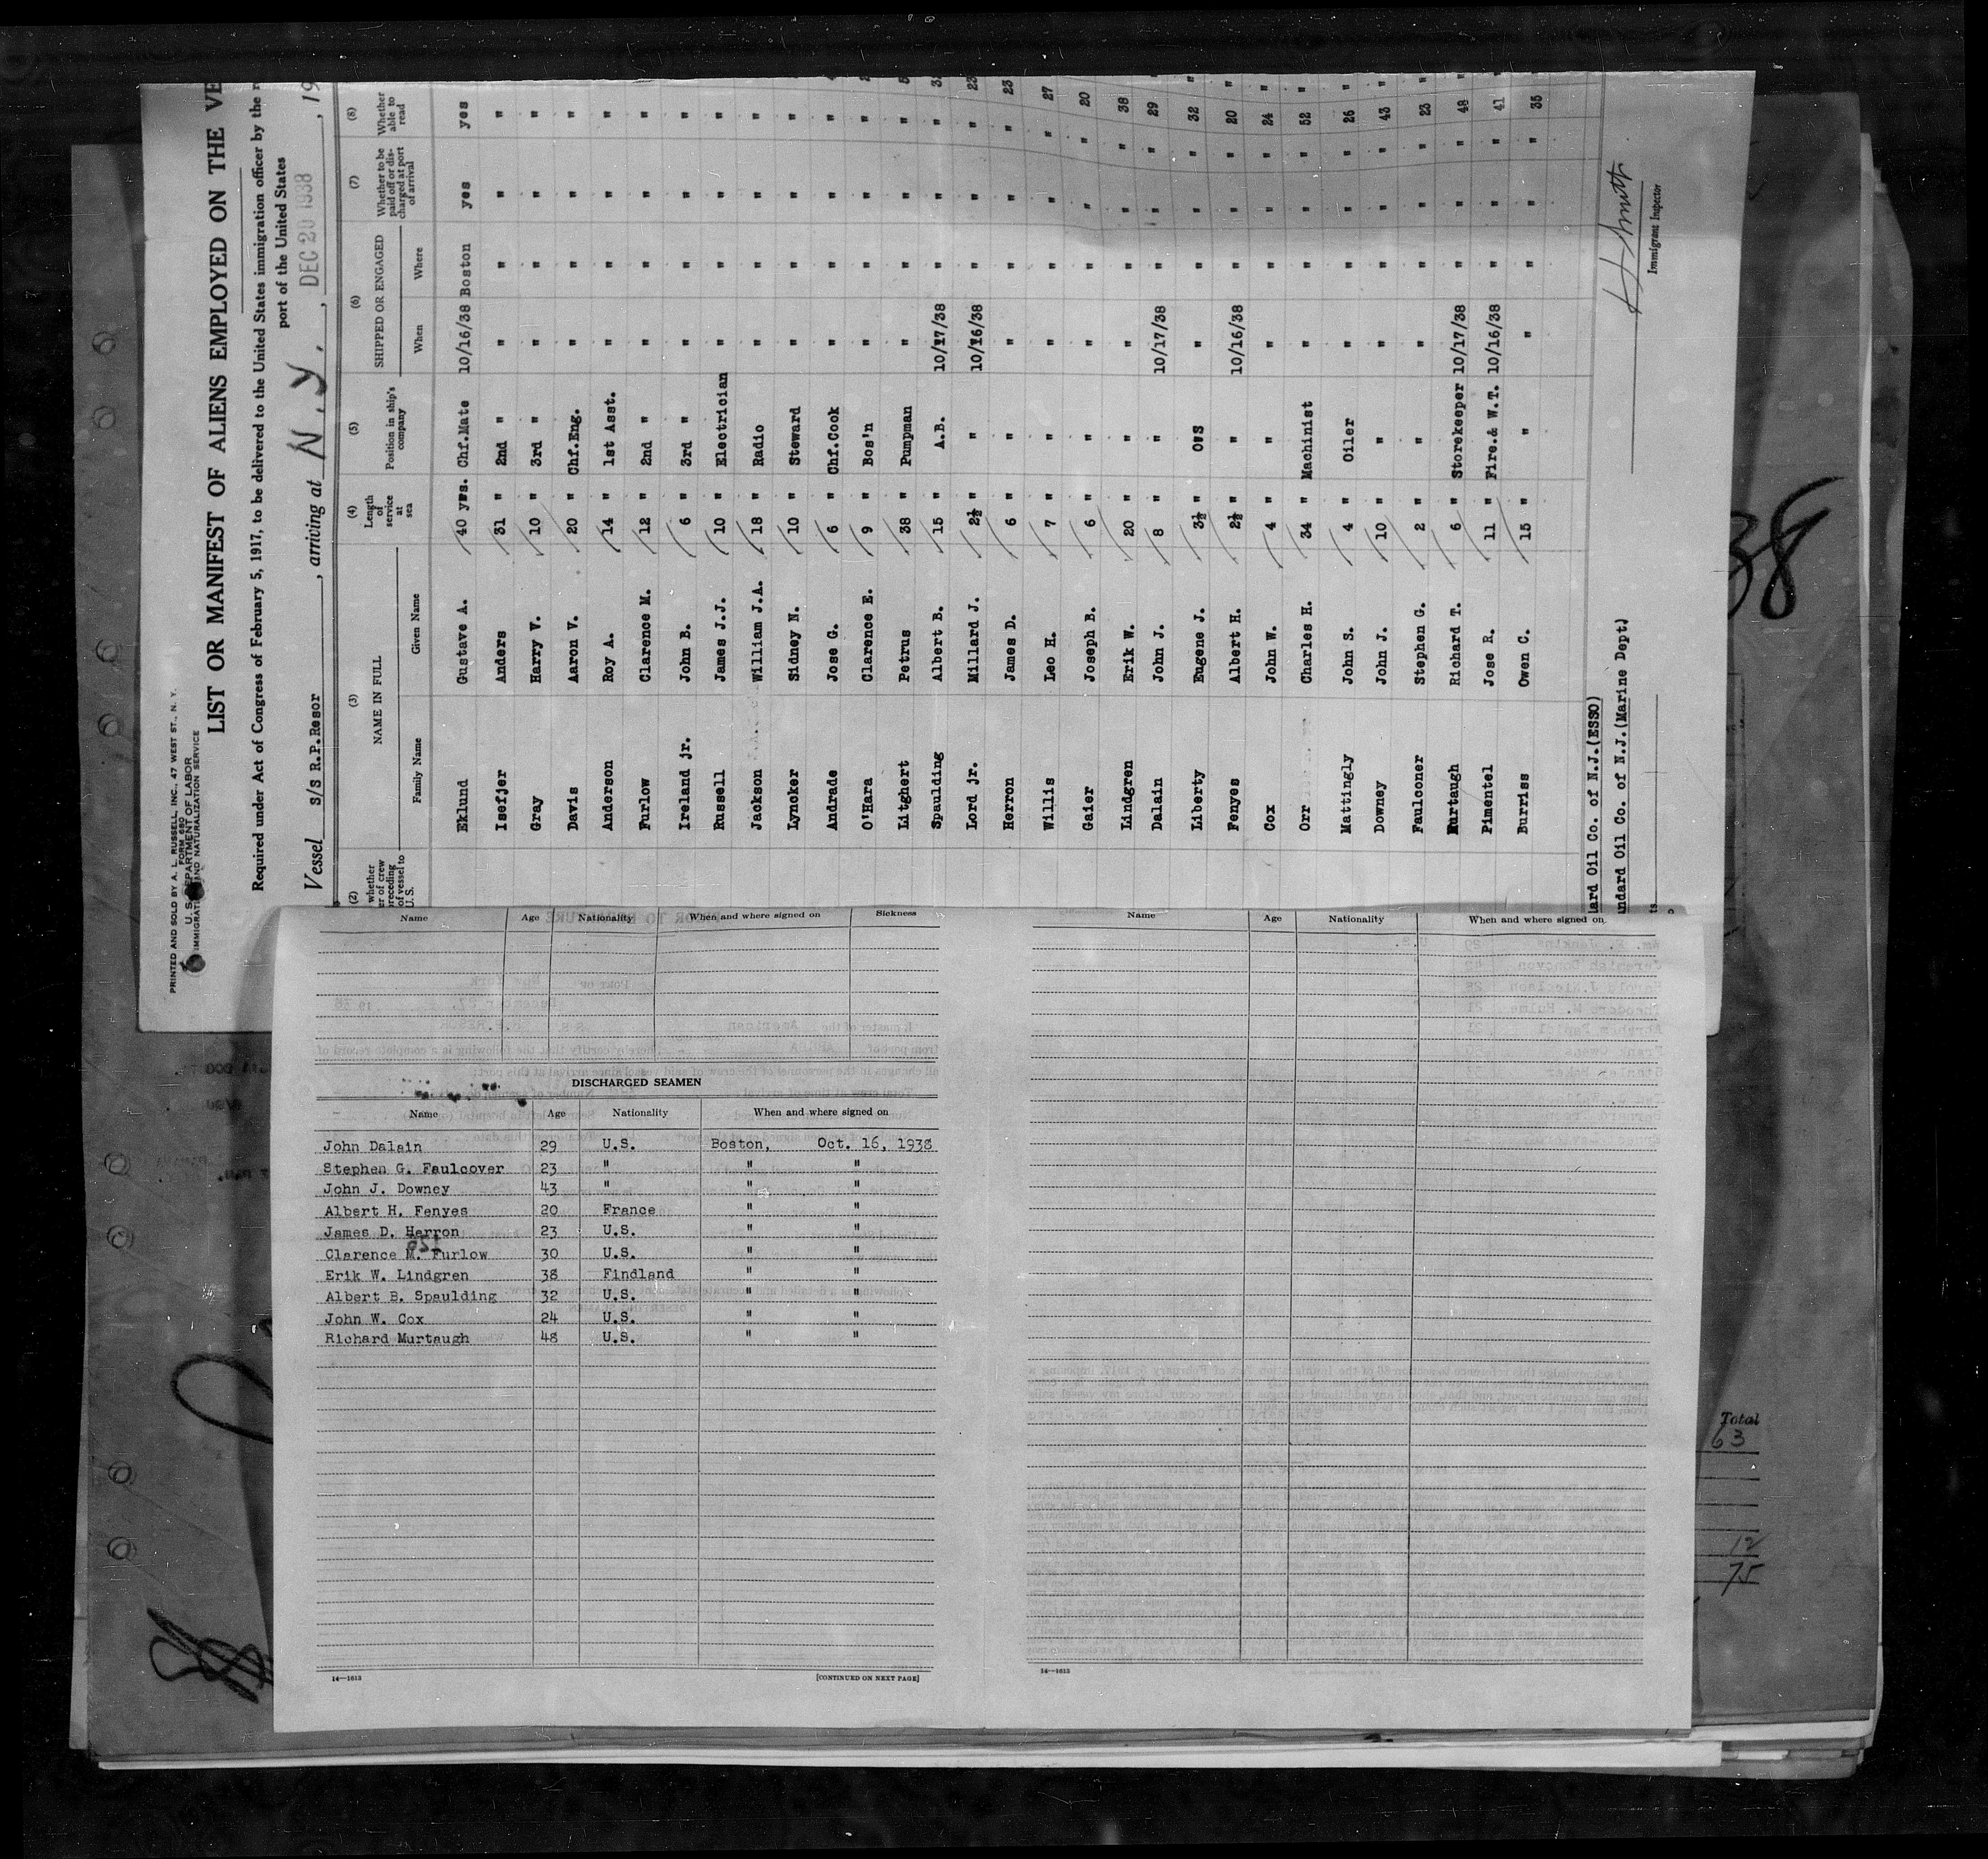 PRINTED AND SOLD BY A. L. RUSSELL, INC., 47 WEST ST., N. Y.
FORM 680
U. S. DEPARTMENT OF LABOR
IMMIGRATION AND NATURALIZATION SERVICE
LIST OR MANIFEST OF ALIENS EMPLOYED ON THE VE
Required under Act of Congress of February 5, 1917, to be delivered to the United States immigration officer by the r
port of the United States
Vessel s/s R.P.Resor , arriving at N.Y. , DEC 20 1938 , 19
(2) (3) (4) (5) (6) (7) (8)
whether
er of crew
preceding
of vessel to
U.S.
NAME IN FULL
Family Name Given Name
Length of service at sea
Position in ship's company
SHIPPED OR ENGAGED
When Where
Whether to be paid off or discharged at port of arrival
Whether able to read
Eklund Gustave A. 40 yrs. Chf.Mate 10/16/38 Boston yes yes
Isefjer Anders 31 " 2nd " " " " "
Gray Harry V. 10 " 3rd " " " " "
Davis Aaron V. 20 " Chf.Eng. " " " "
Anderson Roy A. 14 " 1st Asst. " " " "
Furlow Clarence M. 12 " 2nd " " " " "
Ireland jr. John B. 6 " 3rd " " " " "
Russell James J.J. 10 " Electrician " " " "
Jackson William J.A. 18 " Radio " " " "
Lyncker Sidney N. 10 " Steward " " " "
Andrade Jose G. 6 " Chf.Cook " " " "
O'Hara Clarence E. 9 " Bos'n " " " "
Litghert Petrus 38 " Pumpman " " " "
Spaulding Albert B. 15 " A.B. 10/17/38 " " "
Lord jr. Millard J. 2½ " " 10/16/38 " " " 23
Herron James D. 6 " " " " " " 23
Willis Leo H. 7 " " " " " " 27
Gaier Joseph B. 6 " " " " " " 20
Lindgren Erik W. 20 " " " " " " 38
Dalain John J. 8 " " 10/17/38 " " " 29
Liberty Eugene J. 3½ " O.S " " " " 32
Fenyes Albert H. 2½ " " 10/16/38 " " " 20
Cox John W. 4 " " " " " " 24
Orr Charles H. 34 " Machinist " " " " 52
Mattingly John S. 4 " Oiler " " " " 26
Downey John J. 10 " " " " " " 43
Faulconer Stephen G. 2 " " " " " " 23
Murtaugh Richard T. 6 " Storekeeper 10/17/38 " " " 48
Pimentel Jose R. 11 " Fire.& W.T. 10/16/38 " " " 41
Burriss Owen C. 15 " " " " " " 35
lard Oil Co. of N.J.(ESSO)
andard Oil Co. of N.J.(Marine Dept)
Immigrant Inspector
38
Name Age Nationality When and where signed on Sickness
DISCHARGED SEAMEN
Name Age Nationality When and where signed on
John Dalain 29 U.S. Boston, Oct. 16, 1938
Stephen G. Faulcover 23 " " "
John J. Downey 43 " " "
Albert H. Fenyes 20 France " "
James D. Herron 23 U.S. " "
Clarence M. Furlow 30 U.S. " "
Erik W. Lindgren 38 Findland " "
Albert B. Spaulding 32 U.S. " "
John W. Cox 24 U.S. " "
Richard Murtaugh 48 U.S. " "
14—1613 [CONTINUED ON NEXT PAGE]
Name Age Nationality When and where signed on
14—1613
Total
63
12
75